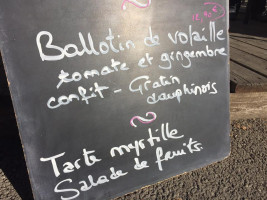 Ballotin de volaille
tomate et gingembre
confit - Gratin
dauphinois
Tarte myrtille
Salade de fruits.